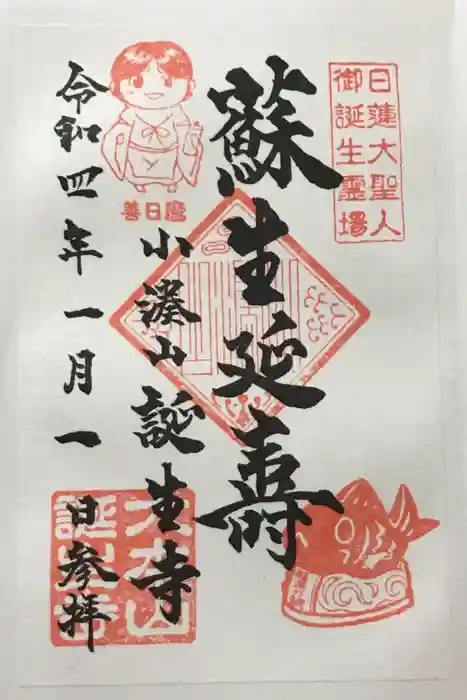 日蓮大聖人
御誕生霊場
蘇生延壽
小湊山 誕生寺
善日麿
令和四年一月一日参拝